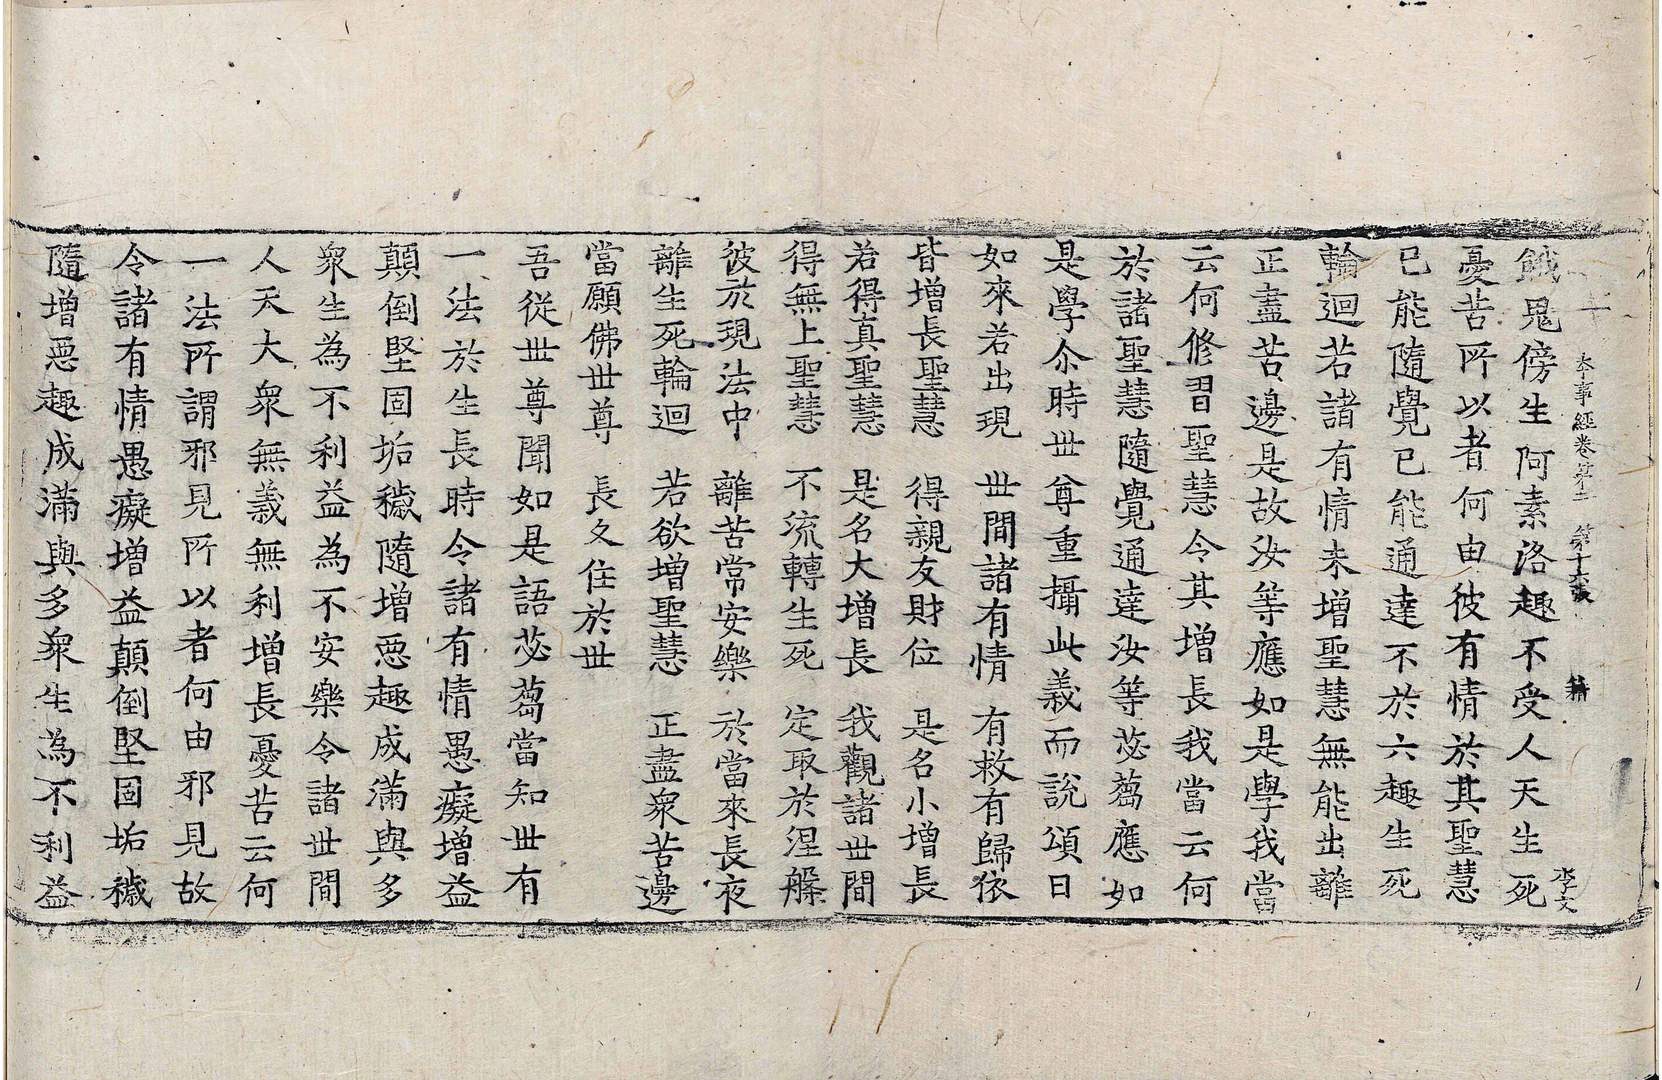 本事經卷第二 第十六張 籍 李文
餓鬼傍生阿素洛趣不受人天生死
憂苦所以者何由彼有情於其聖慧
已能隨覺已能通達不於六趣生死
輪迴若諸有情未增聖慧無能出離
正盡苦邊是故汝等應如是學我當
云何修習聖慧令其增長我當云何
於諸聖慧隨覺通達汝等苾蒭應如
是學尒時世尊重攝此義而說頌曰
如來若出現 世間諸有情 有救有歸依
皆增長聖慧 得親友財位 是名小增長
若得真聖慧 是名大增長 我觀諸世間
得無上聖慧 不流轉生死 定取於涅槃
彼於現法中 離苦常安樂 於當來長夜
離生死輪迴 若欲增聖慧 正盡衆苦邊
當願佛世尊 長久住於世
吾從世尊聞如是語苾蒭當知世有
一法於生長時令諸有情愚癡增益
顛倒堅固垢穢隨增惡趣成滿與多
衆生為不利益為不安樂令諸世間
人天大衆無義無利增長憂苦云何
一法所謂邪見所以者何由邪見故
令諸有情愚癡增益顛倒堅固垢穢
隨增惡趣成滿與多衆生為不利益